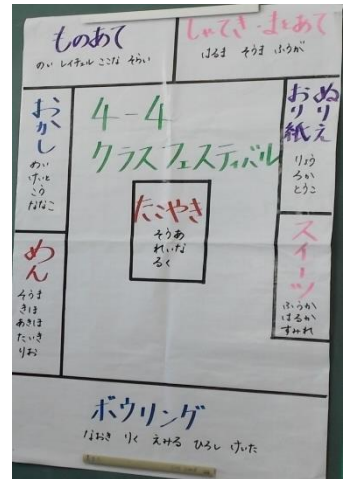 ものあて
のい レイチェル ここな そらい
しゃてき・まとあて
はるま そうま ふうが
おかし
めい
けいと
こう
ななこ
4-4
クラスフェスティバル
ぬりえ
おり紙
りょう
るか
とうこ
たこやき
そうあ
れいな
るく
めん
そうま
きほ
あきほ
たいき
りお
スイーツ
ふうか
はるか
すみれ
ボウリング
なおき りく えみる ひろし けいた